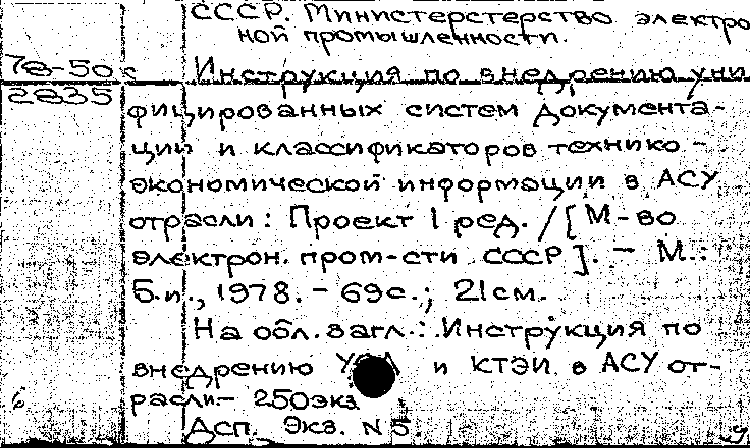 СССР. Министерстерство электро
ной промышленности.
78-50с
2835
Инструкция по внедрению уни
фицированных систем документа-
ции и классификаторов технико-
экономической информации в АСУ
отрасли: Проект 1 ред. / [М-во
электрон. пром-сти СССР]. - М.:
Б.и., 1978. - 69с.; 21см.
На обл. загл.: Инструкция по
внедрению и КТЭИ в АСУ от-
расли.- 250экз.
Дсп. Экз. N 5.